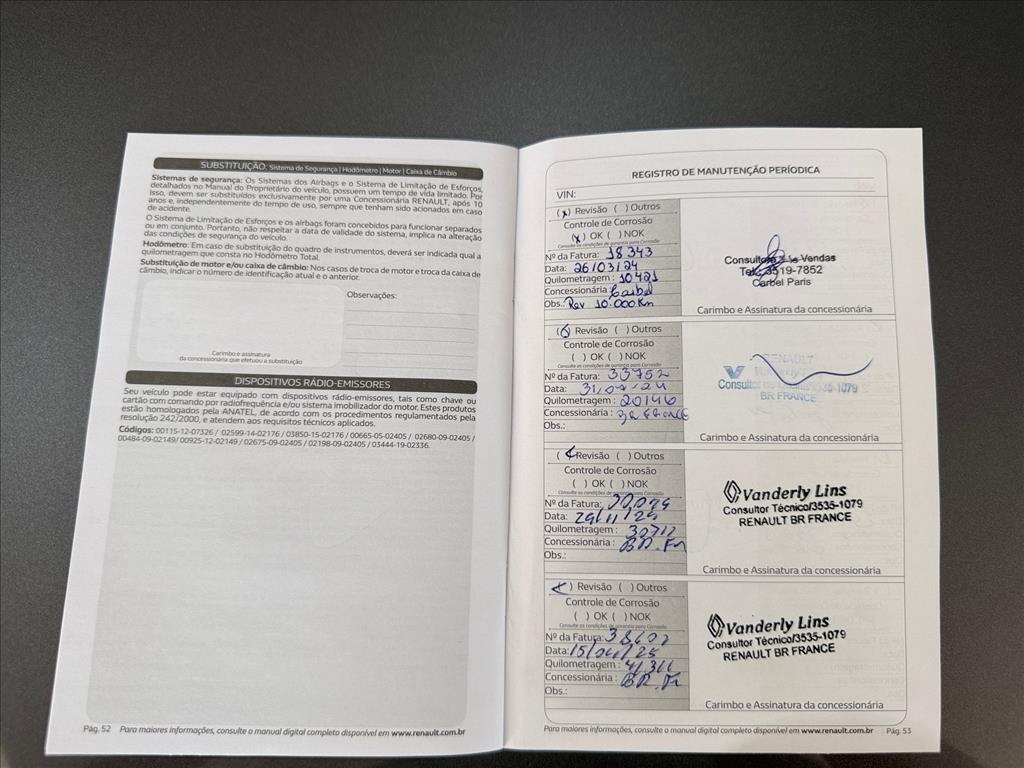 SUBSTITUIÇÃO: Sistema de Segurança | Hodômetro | Motor | Caixa de Câmbio
Sistemas de segurança: Os Sistemas dos Airbags e o Sistema de Limitação de Esforços,
detalhados no Manual do Proprietário do veículo, possuem um tempo de vida limitado. Por
isso, devem ser substituídos exclusivamente por uma Concessionária RENAULT, após 10
anos e, independentemente do tempo de uso, sempre que tenham sido acionados em caso
de acidente.
O Sistema de Limitação de Esforços e os airbags foram concebidos para funcionar separados
ou em conjunto. Portanto, não respeitar a data de validade do sistema, implica na alteração
das condições de segurança do veículo.
Hodômetro: Em caso de substituição do quadro de instrumentos, deverá ser indicada qual a
quilometragem que consta no Hodômetro Total.
Substituição de motor e/ou caixa de câmbio: Nos casos de troca de motor e troca da caixa de
câmbio, indicar o número de identificação atual e o anterior.
Observações:
Carimbo e assinatura
da concessionária que efetuou a substituição
DISPOSITIVOS RÁDIO-EMISSORES
Seu veículo pode estar equipado com dispositivos rádio-emissores, tais como chave ou
cartão com comando por radiofrequência e/ou sistema imobilizador do motor. Estes produtos
estão homologados pela ANATEL, de acordo com os procedimentos regulamentados pela
resolução 242/2000, e atendem aos requisitos técnicos aplicados.
Códigos: 00115-12-07326 / 02599-14-02176 / 03850-15-02176 / 00665-05-02405 / 02680-09-02405 /
00484-09-02149/ 00925-12-02149 / 02675-09-02405 / 02198-09-02405 / 03444-19-02336.
Pág. 52 Para maiores informações, consulte o manual digital completo disponível em www.renault.com.br
REGISTRO DE MANUTENÇÃO PERIÓDICA
VIN:
(x) Revisão ( ) Outros
Controle de Corrosão
(x) OK ( ) NOK
Consulte as condições de garantia para Corrosão
Nº da Fatura: 18343
Data: 26/03/24
Quilometragem: 10421
Concessionária: Carbel
Obs.: Rev 10.000Km
Consultora de Vendas
Tel.: 3519-7852
Carbel Paris
Carimbo e Assinatura da concessionária
(x) Revisão ( ) Outros
Controle de Corrosão
( ) OK ( ) NOK
Consulte as condições de garantia para Corrosão
Nº da Fatura: 33752
Data: 31/07/24
Quilometragem: 20146
Concessionária: BR FRANCE
Obs.:
RENAULT
Vanderly Lins
3535-1079
BR FRANCE
Carimbo e Assinatura da concessionária
(x) Revisão ( ) Outros
Controle de Corrosão
( ) OK ( ) NOK
Consulte as condições de garantia para Corrosão
Nº da Fatura:
Data:
Quilometragem: 30712
Concessionária: BR. Fr
Obs.:
Vanderly Lins
Consultor Técnico/3535-1079
RENAULT BR FRANCE
Carimbo e Assinatura da concessionária
(x) Revisão ( ) Outros
Controle de Corrosão
( ) OK ( ) NOK
Consulte as condições de garantia para Corrosão
Nº da Fatura: 38602
Data: 15/04/25
Quilometragem: 41311
Concessionária: BR. Fr
Obs.:
Vanderly Lins
Consultor Técnico/3535-1079
RENAULT BR FRANCE
Carimbo e Assinatura da concessionária
Para maiores informações, consulte o manual digital completo disponível em www.renault.com.br Pág. 53